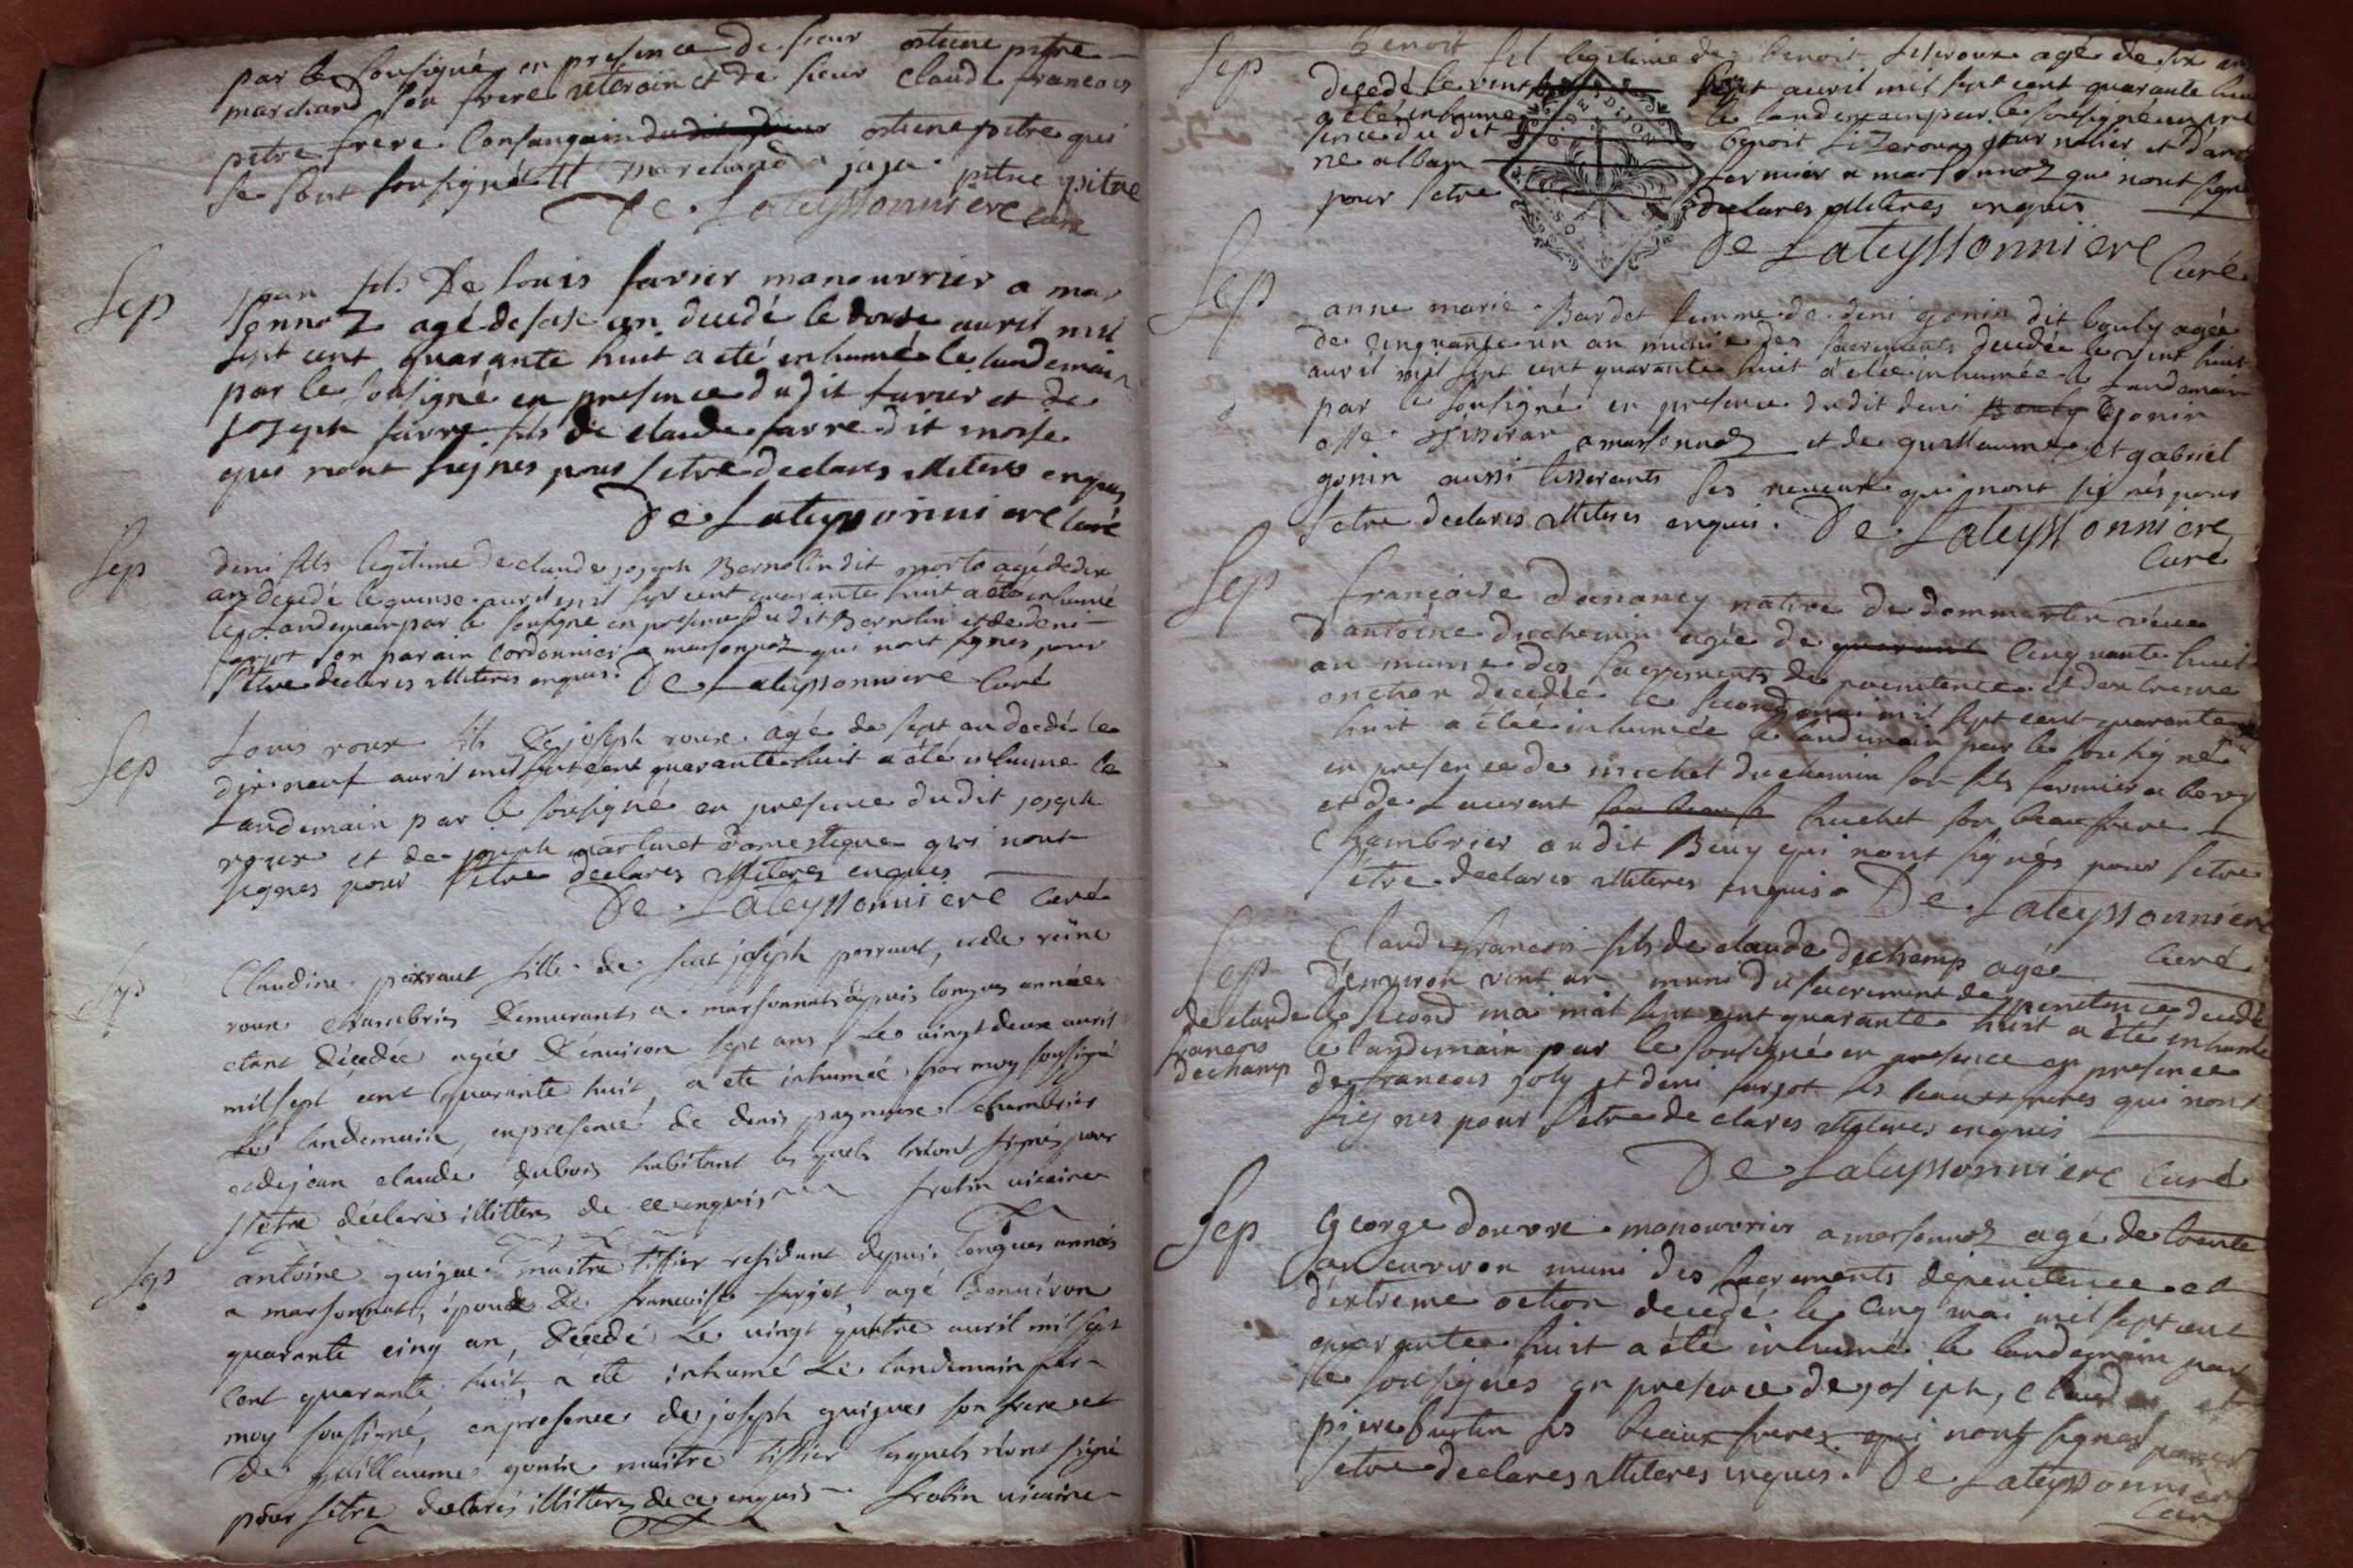 par le sousigné en presence de sieur etiene pitre
marchand son frere uterain et de sieur Claude francois
pitre frere Consanguain dudit sieur etiene pitre qui
se sont sousignés marchand a jaja pitre pitre
De Lateyssonniere Curé
Sep
jean fils De louis favier manouvrier a mar
sonnaz agé de six an decedé le douse auril mil
sept cent quarante huit a été inhumé le landemain
par le sousigné en presence dudit favier et de
joseph farre fils de claude farre dit moise
qui nont signes pour setre declares illiteres enquis
De Lateyssonniere Curé
Sep
deni fils legitime de claude joseph Bernolin dit agé de dix
an decedé le quinse auril mil sept cent quarante huit a été inhumé
le Landemain par le sousigné en presence dudit Bernolin et de deni
farjot son parain Cordonnier a marsonnaz qui nont signes pour
setre declares illiteres enquis. De Lateyssonniere Curé
Sep
Louis roux fils De joseph roux agé de sept an decedé le
dix neuf auril mil sept cent quarante huit a été inhumé le
Landemain par le sousigné en presence dudit joseph
roux et de joseph martinet domestique qui nont
signes pour setre declares illiteres enquis
De Lateyssonniere Curé
Sep
Claudine perraut fille de feut joseph perraut, et de reine
roux chambrier Demurants a marsonnat depuis longues années
etant décedée agée d'enuiron sept ans le vingt deux auril
mil sept cent quarante huit, a été inhumée par moy sousigné
Le landemain, en presence de denis pagneux chambrier
et de jean claude dubois habitant les quels n'ont signés pour
s'etre déclarés illitters de ce enquis frolin vicaire
Sep
antoine guigue maitre tissier residant depuis longues annés
a marsonnat, époux De francoise farjot, agé denuiron
quarante cinq an, décedé Le vingt quatre auril mil sept
Cent quarante huit, a été inhumé Le landemain par
moy sousigné, en presence de joseph guigues son frere et
de guillaume gonin maitre tissier lesquels n'ont signé
pour s'etre declarés illitters de ce enquis frolin vicaire
Sep
benoit fil legitime de benoit liseroux agé de six an
decedé le vint sept auril mil sept cent quarante huit
a été inhumé le landemain par le sousigné en pre
sence du dit benoit liseroux journalier et d'antoi
ne alban fermier a marsonnaz qui nont signé
pour setre declares illiteres enquis
De Lateyssonniere Curé
Sep
anne marie Bardet femme de deni gonin dit bouly agée
de cinquante un an munie des sacrements decedée le vint huit
auril mil sept cent quarante huit a étée inhumée le Landemain
par le sousigné en presence dudit deni Bouly Gonin
tisseran a marsonnaz et de guillaume et gabriel
gonin aussi tisserants ses neueux qui nont signés pour
setre declares illiteres enquis. De Lateyssonniere
Curé
Sep
françoise Dananey native de dommartin véue
d'antoine duchemin agée de quarant Cinquante huit
an munie des sacrements de penitence et dextreme
onction decedée le second mai mil sept cent quarante
huit a étée inhumée le landemain par le sousigné
en presence de michel duchemin son fils fermier a bevy
et de Laurent son beau f huchet son beaufrere
chambrier au dit Bevy qui nont signés pour setre
setre declares illiteres enquis. De Lateyssonniere
Curé
Sep
de claude
francois
dechamp
Claude francois fils de claude dechamp agée
d'environ vint an muni du sacrement de penitence decedé
le second mai mil sept cent quarante huit a été inhumé
le landemain par le sousigné en presence en presence
de francois joly et deni farjot ses beaux freres qui nont
signes pour setre declares illiteres enquis
De Lateyssonniere Curé
Sep
George douvre manouvrier a marsonnaz agé de trente
an environ muni des sacrements de penitence et
d'extreme oction decedé le cinq mai mil sept cent
quarante huit a été inhumé le landemain par
le sousignes en presence de joseph, claude et
piere burtin ses beaux freres qui nont signes pour
setre declares illiteres enquis. De Lateyssonniere
Curé